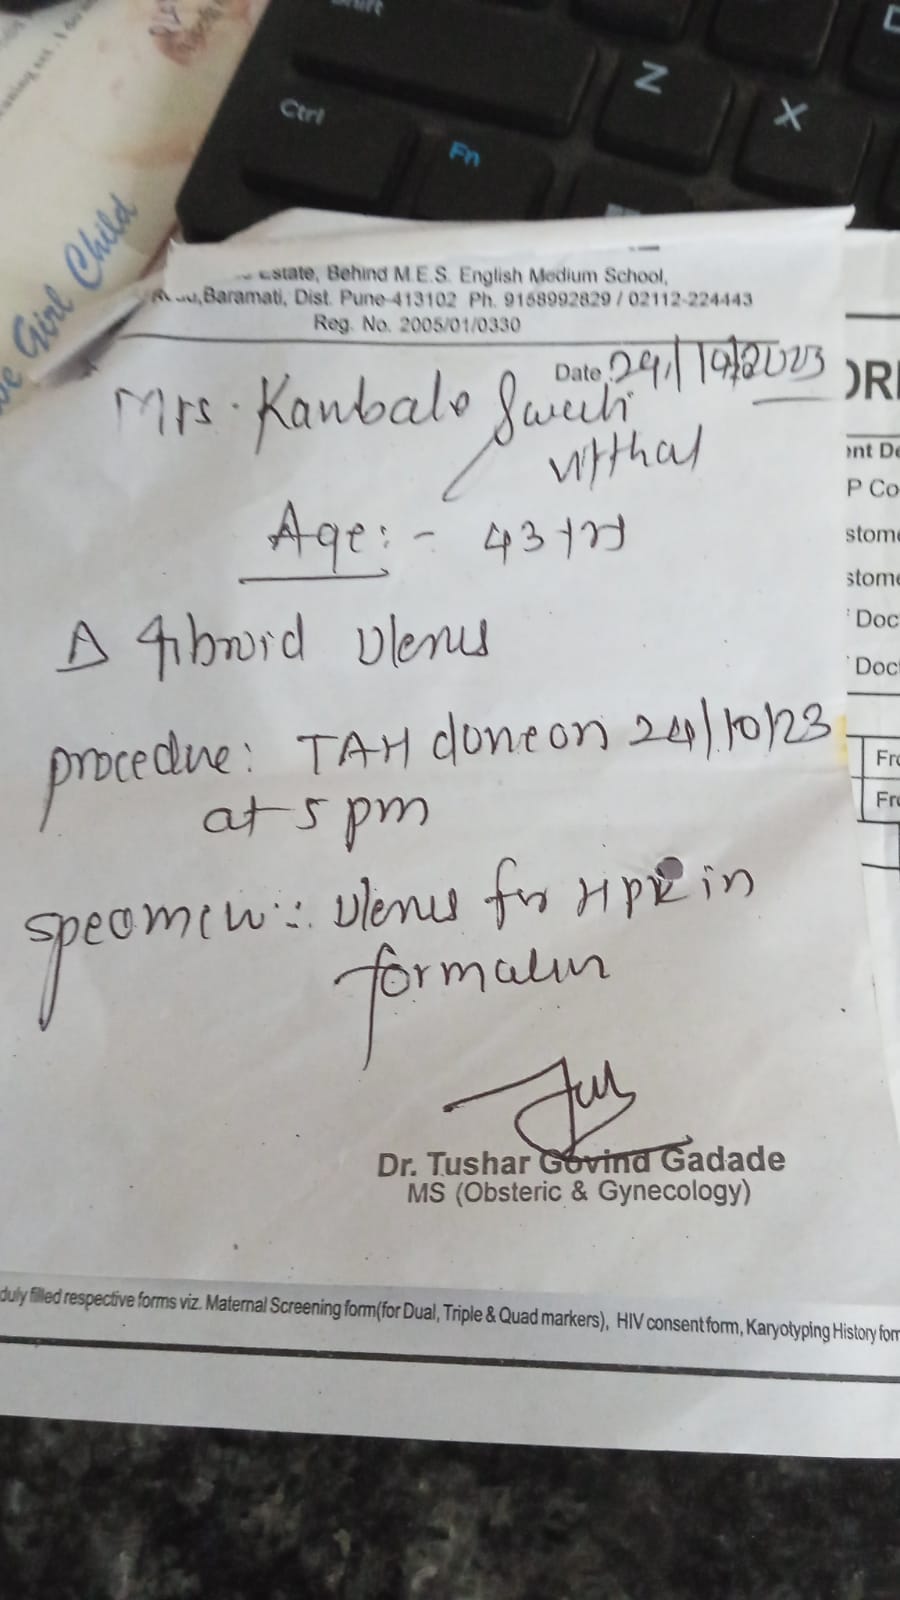 Shift
Z
X
Ctrl
Fn
Girl Child
Estate, Behind M.E.S. English Medium School,
Baramati, Dist. Pune-413102 Ph. 9158992829 / 02112-224443
Reg. No. 2005/01/0330
Date 24/10/2023
Mrs. Kanbale
vitthal
Age:- 43 yrs
Δ fibroid Uterus
procedure: TAH done on 24/10/23
at 5 pm
specimen:- Uterus for HPR in
formalin
Dr. Tushar Govind Gadade
MS (Obsteric & Gynecology)
duly filled respective forms viz. Maternal Screening form(for Dual, Triple & Quad markers), HIV consent form, Karyotyping History form
ORI
ent De
P Co
stome
stome
Doc
Doc
Fro
Fro